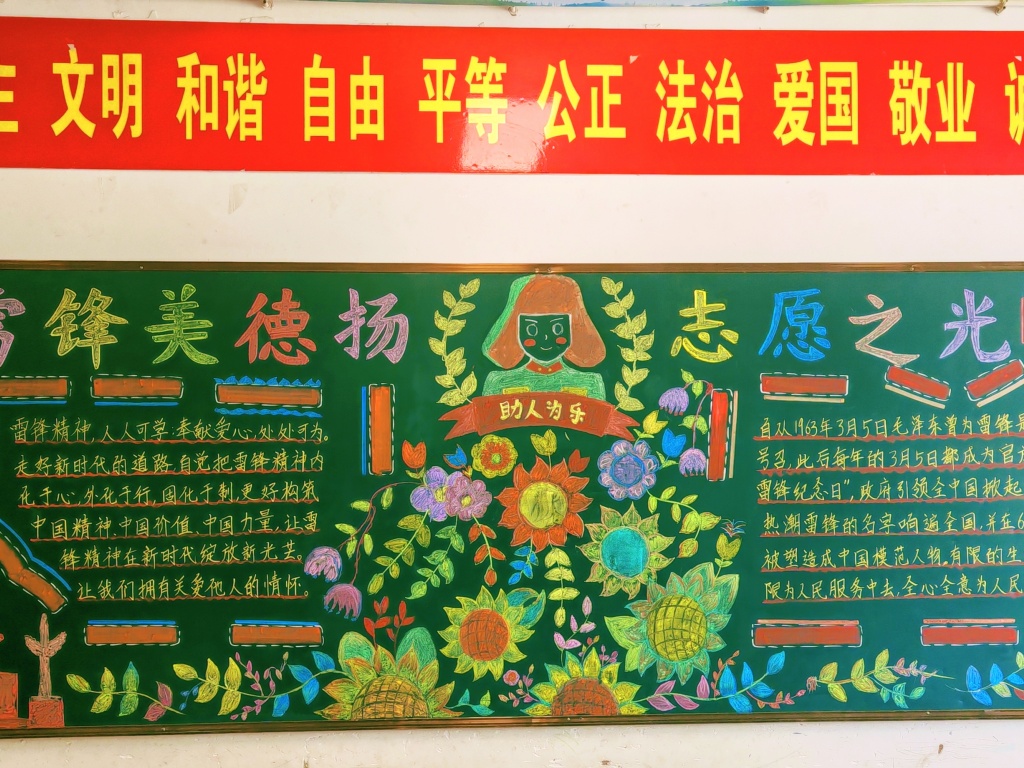 文明 和谐 自由 平等 公正 法治 爱国 敬业
锋美德扬 志愿之光
助人为乐
雷锋精神,人人可学;奉献爱心,处处可为。
走好新时代的道路,自觉把雷锋精神内
化于心,外化于行,固化于制,更好构筑
中国精神、中国价值、中国力量,让雷
锋精神在新时代绽放新光芒。
让我们拥有关爱他人的情怀。
自从1963年3月5日毛泽东曾为雷锋
号召,此后每年的3月5日都成为官
雷锋纪念日",政府引领全中国掀起
热潮雷锋的名字响遍全国,并在6
被塑造成中国模范人物。有限的生
限为人民服务中去,全心全意为人民